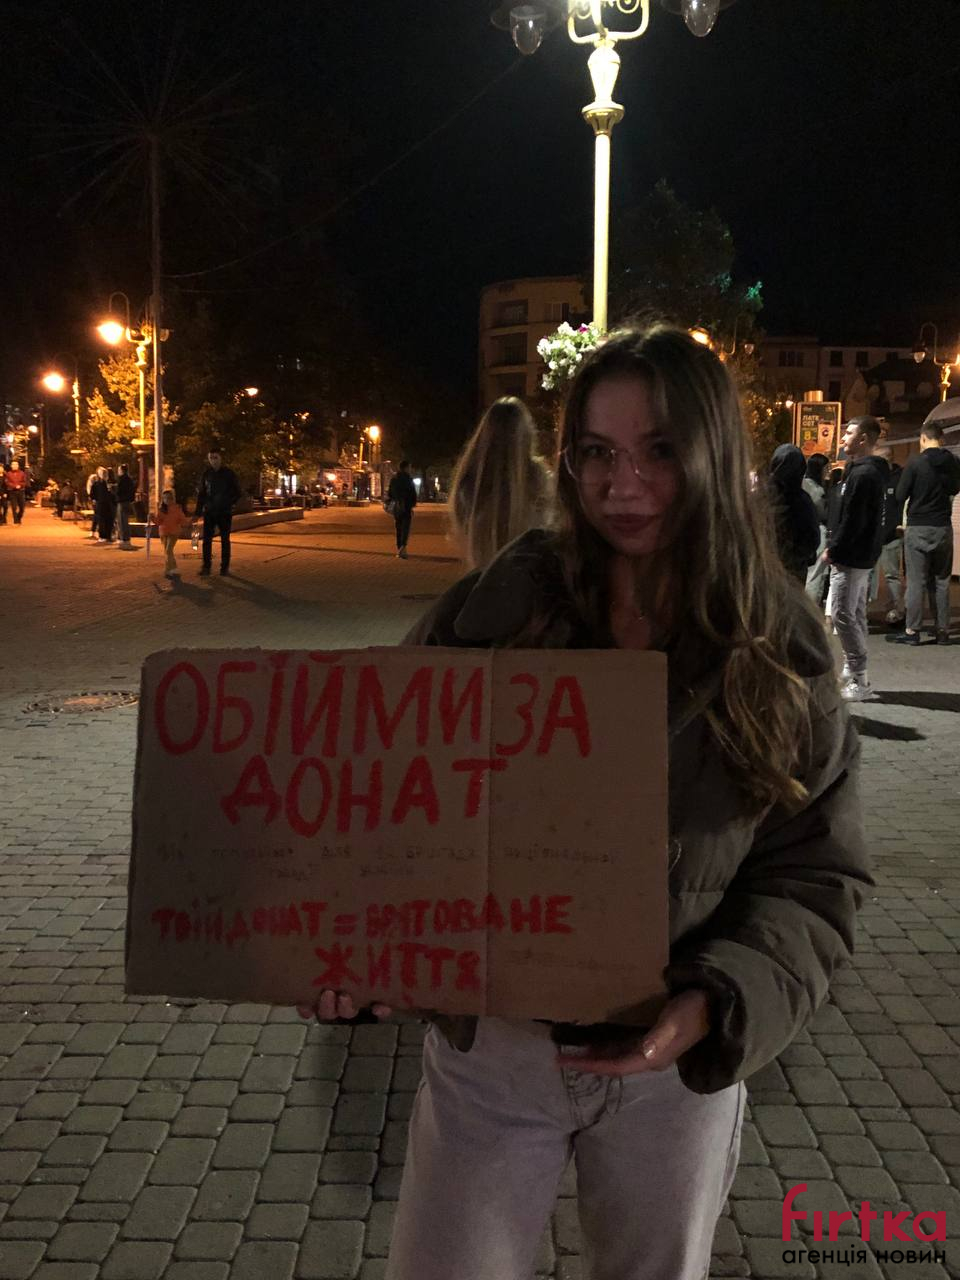 ОБІЙМИ ЗА
ДОНАТ
ТВІЙ ДОНАТ = ВРЯТОВАНЕ
ЖИТТЯ
fırtka
агенція новин